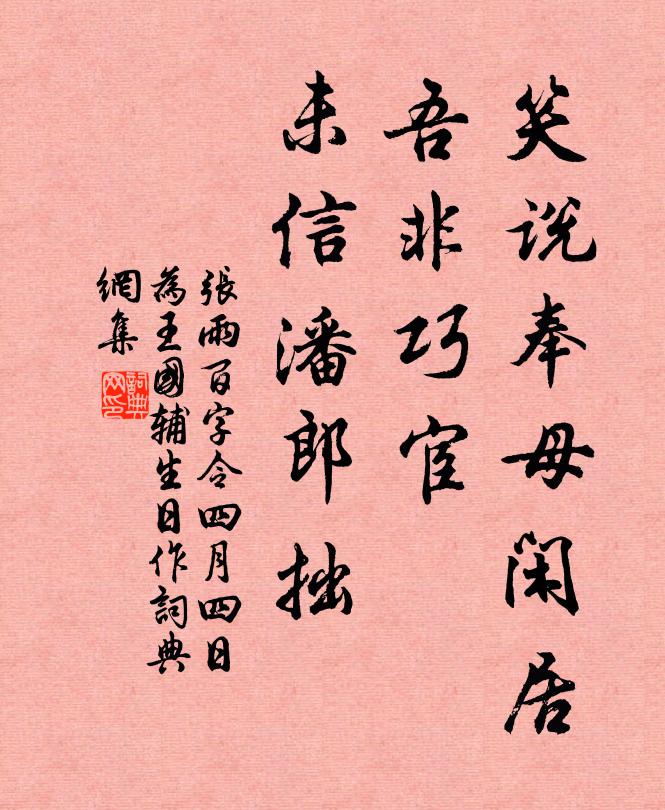 笑说奉母闲居
吾非巧宦
未信潘郎拙
張雨百字令四月四日
為王國辅生日作詞典
網集
詞典網印